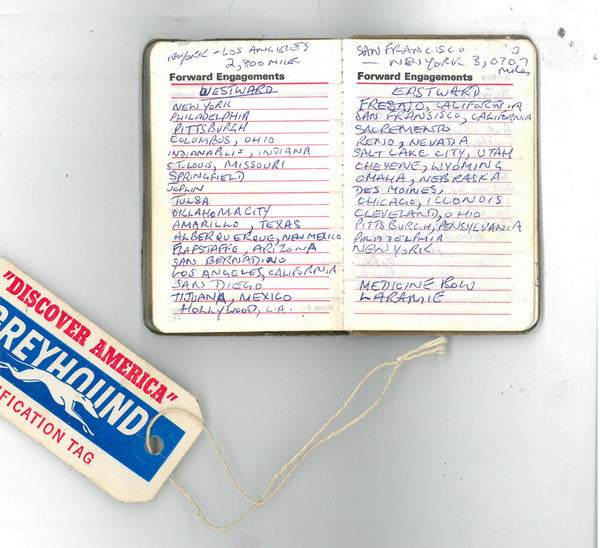 NEW YORK - LOS ANGELES
2,800 MILES
Forward Engagements
WESTWARD
NEW YORK
PHILADELPHIA
PITTSBURGH
COLUMBUS, OHIO
INDIANABLIS, INDIANA
ST. LOUIS, MISSOURI
SPRINGFIELD
JOPLIN
TULSA
OKLAHOMA CITY
AMARILLO, TEXAS
ALBERQUERQUE, NEW MEXICO
FLAGSTAFFE, ARIZONA
SAN BERNADINO
LOS ANGELES, CALIFORNIA
SAN DIEGO
TIJUANA, MEXICO
HOLLYWOOD, L.A.
SAN FRANCISCO
— NEW YORK 3,070
Miles
Forward Engagements
EASTWARD
FRESNO, CALIFORNIA
SAN FRANSISCO, CALIFORNIA
SACREMENTO
RENO, NEVADA
SALT LAKE CITY, UTAH
CHEYENE, WYOMING
OMAHA, NEBRASKA
DES MOINES,
CHICAGO, ILLONOIS
CLEVELAND, OHIO
PITTSBURGH, PENSYLVANIA
PHILADELPHIA
NEW YORK
MEDICINE BOW
LARAMIE
"DISCOVER AMERICA"
GREYHOUND
IFICATION TAG